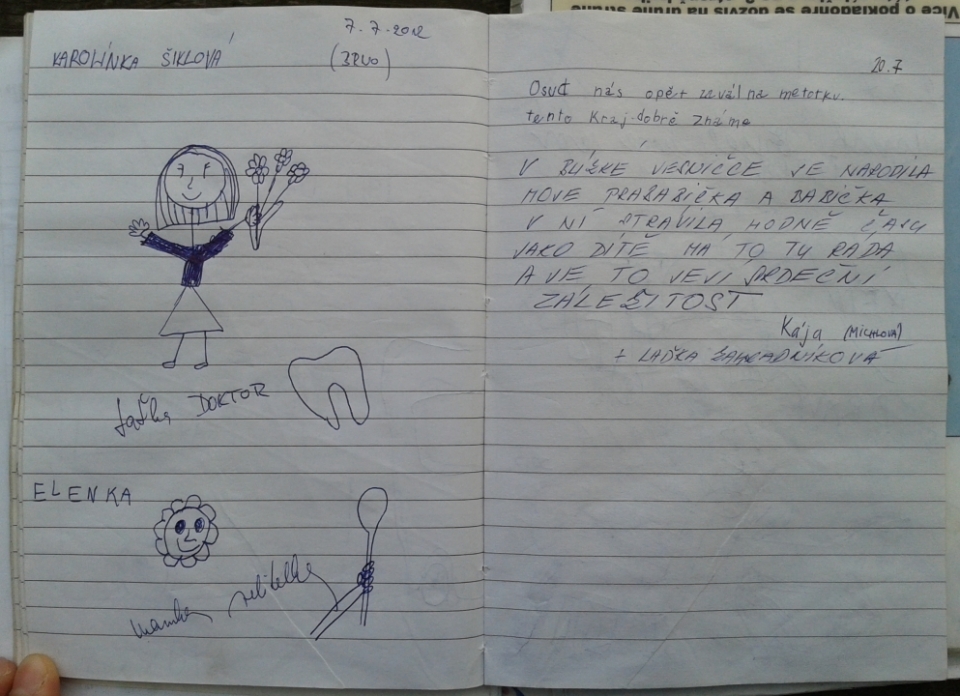 Více o pokladohře se dozvíš na druhé straně
7.7.2012
KAROLÍNKA ŠIKLOVÁ
(BRNO)
taťka DOKTOR
ELENKA
mamka velitelka
20.7
Osud nás opět zavál na metorku.
tento Kraj dobrě známe
V BLÍZKÉ VESNIČCE SE NARODILA
MOJE PRABABIČKA A BABIČKA
V NÍ STRÁVILA HODNĚ ČASU
JAKO DÍTĚ MÁ TO TU RÁDA
A JE TO JEJÍ SRDEČNÍ
ZÁLEŽITOST
Kája (MICHLOVÁ)
+ LAĎKA ZAHRADNÍKOVÁ